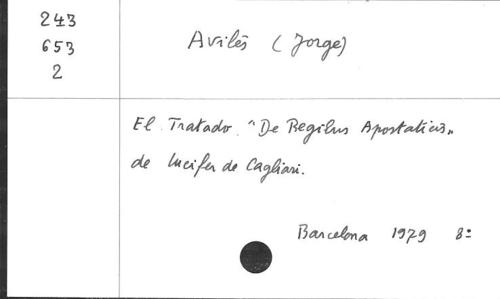 243
653
2
Avilés (Jorge)
El Tratado "De Regibus Apostaticis"
de Lucifer de Cagliari.
Barcelona 1979 8º